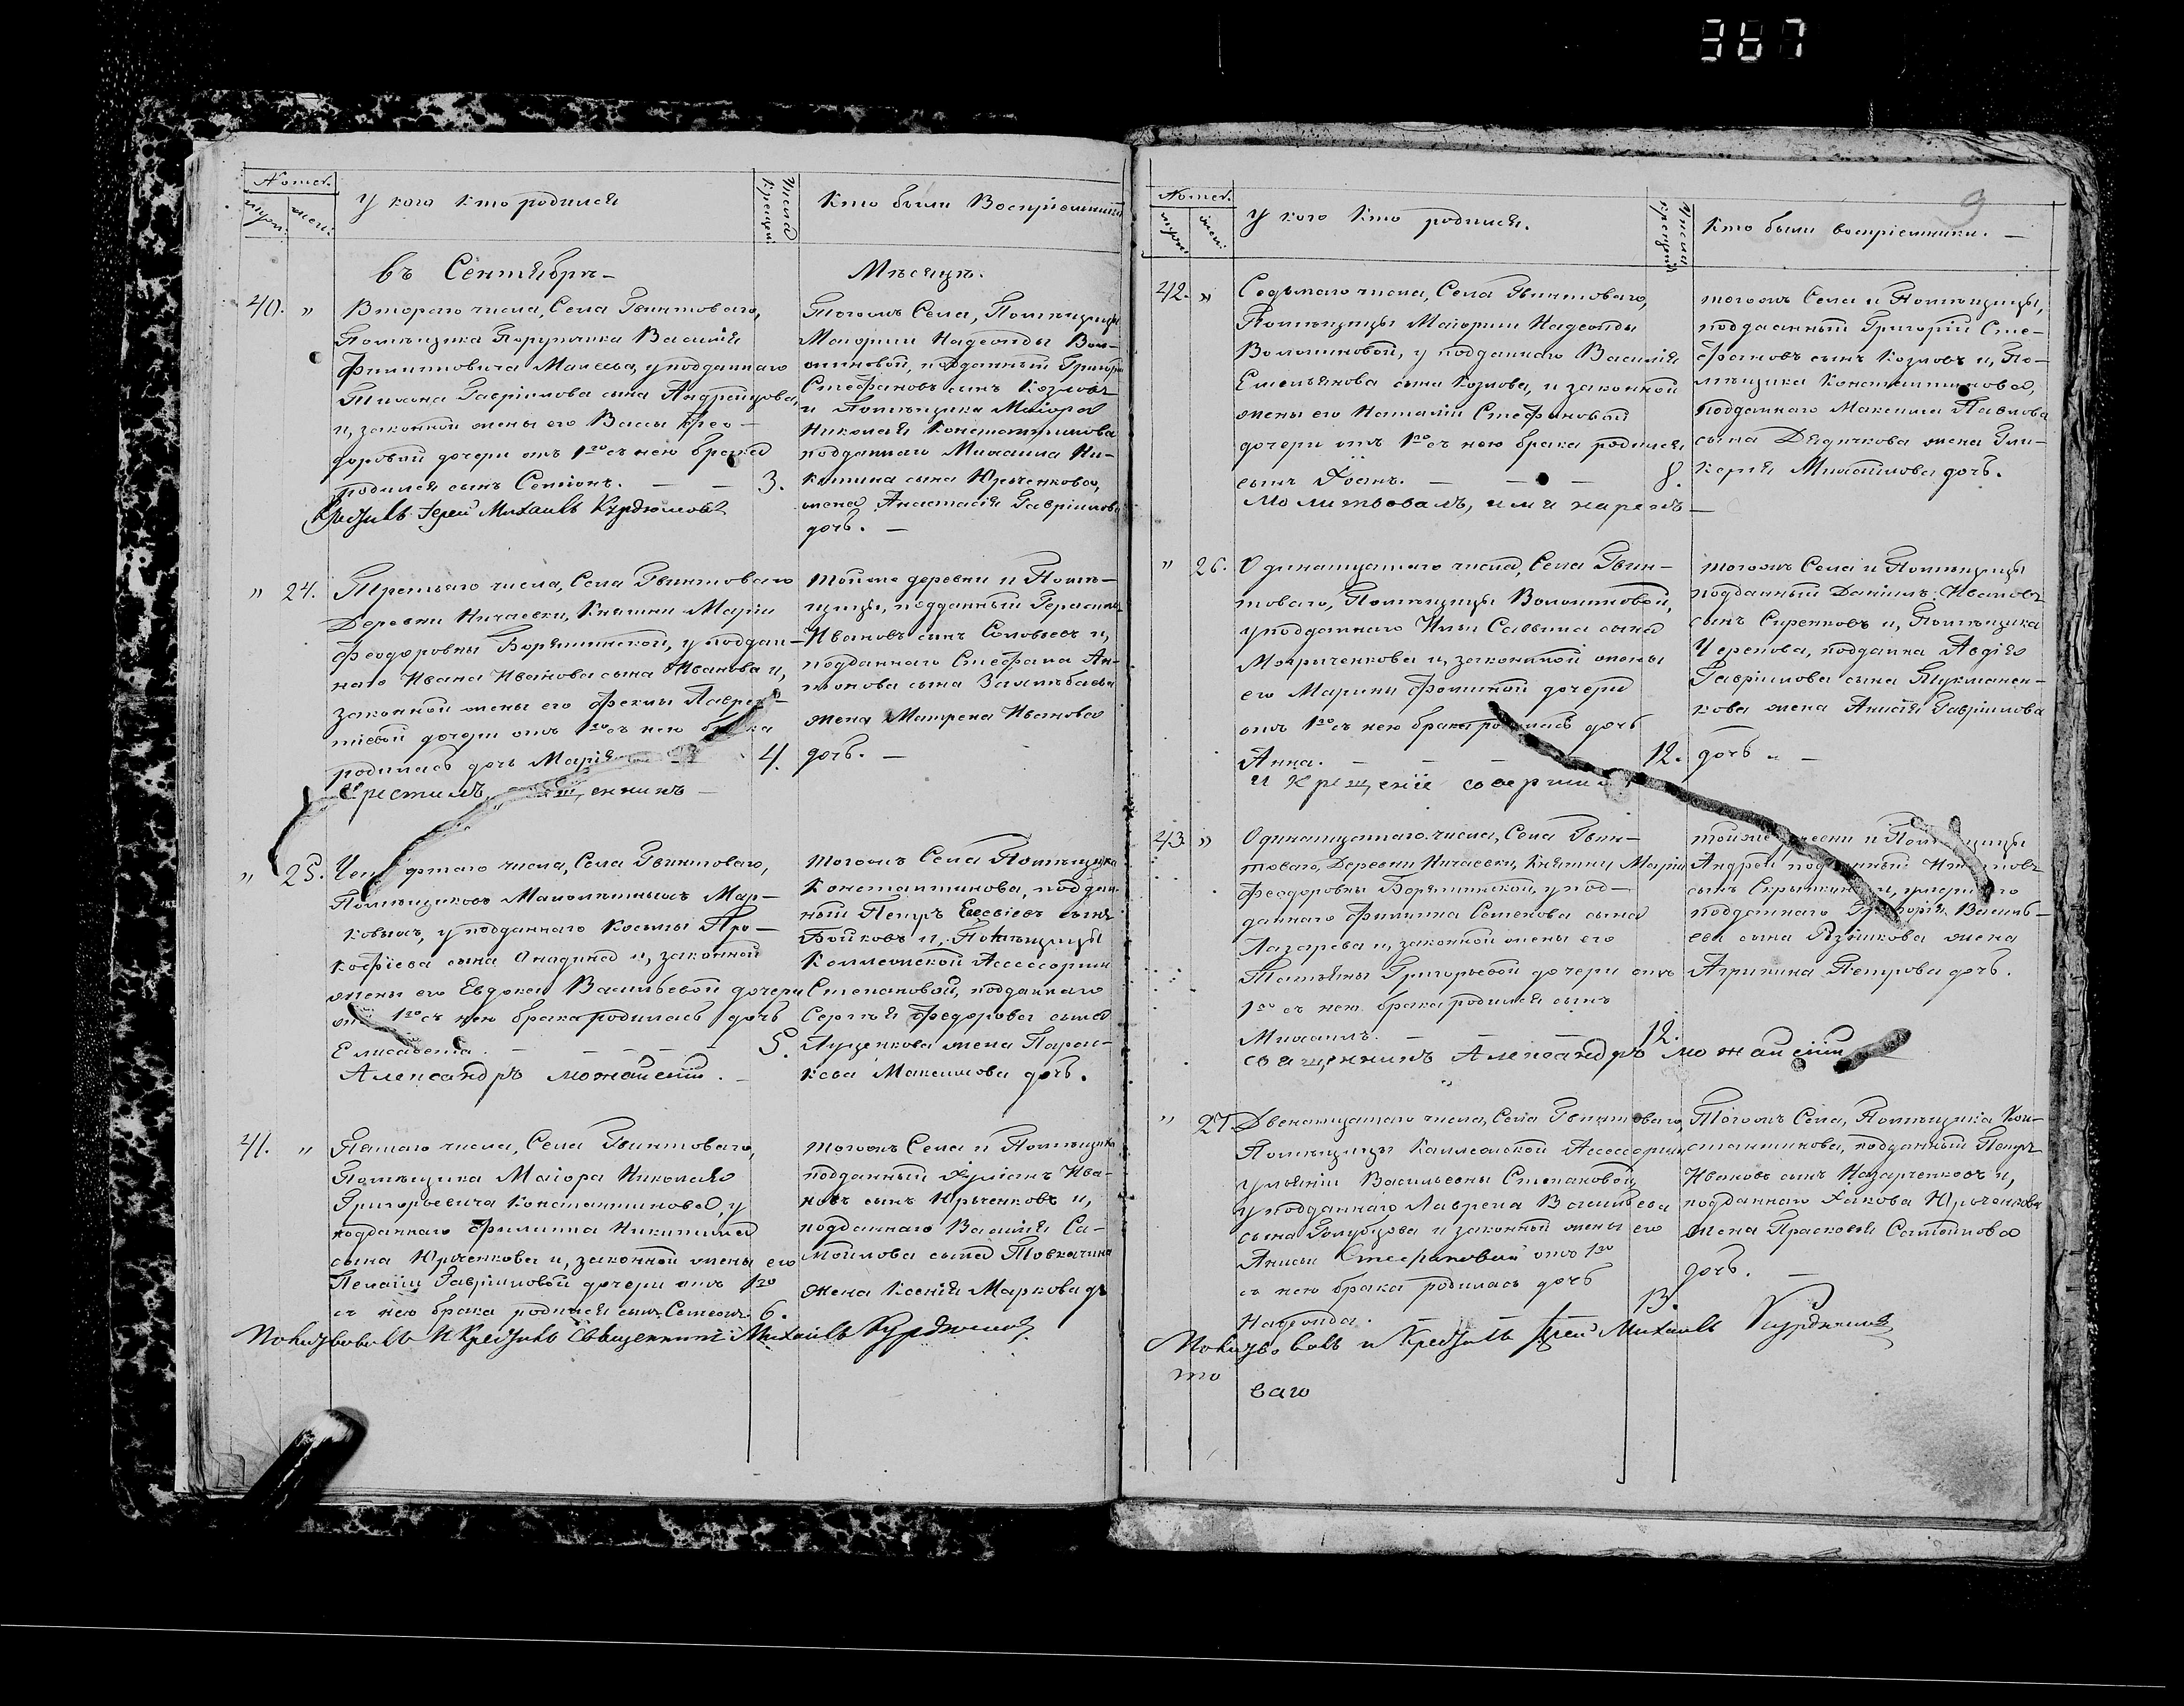 367
9
Номер.
муж:
жен:
У кого кто родился
Числа Крещен:
Кто были Восприемники
въ Сентябрѣ
Мѣсяцѣ.
40. "
Втораго числа, Села Гвинтоваго,
Помѣщика Порутчика Василія
Филипповича Малева, у подданнаго
Гавріилова сына
и, законной жены его Вассы Ѳео-
доровой дочери отъ 1го съ нею брака
родился сынъ Семіонъ. — — 3.
Крестилъ Іерей Михаилъ Курдюмовъ
Тогожъ Села, Помѣщицы
Маіорши Надежды Вол-
онковой, подданный Григорій
Стефановъ сынъ Козловъ
и Помѣщика Маіора
Николая Константинова
подданнаго Михаила Ни-
китина сына Юрченкова,
жена Анастасія Гавріилова
дочь. —
" 24.
Третьяго числа, Села Гвинтоваго
Деревни Ничаевки, Княжны Маріи
Феодоровны Борятинской, у поддан-
наго Ивана Иванова сына Иванова и,
законной жены его Феклы Лаврен-
тіевой дочери отъ 1го съ нею брака
родилась дочь Марія 4.
Крестилъ, священникъ —
тойже деревни и Помѣ-
щицы, подданный Герасимъ
Ивановъ сынъ Соловьевъ и,
подданнаго Стефана Ан-
тонова сына
жена Матрена Иванова
дочь. —
" 25.
Четвертаго числа, Села Гвинтоваго,
Помѣщиковъ Малолѣтныхъ Мар-
ковыхъ, у подданнаго Косьмы Про-
кофіева сына и, законной
жены его Евдокеи Васильевой дочери
отъ 1го съ нею брака родилась дочь
Елисавета. — — — — — 5.
Александръ Можайскій. —
тогожъ Села Помѣщика
Константинова, поддан-
ный Петръ Евсѣевъ сынъ
Бойковъ и, Помѣщицы
Коллежской Ассесорши
Степановой, подданнаго
Сергѣя Федорова сына
Луценкова жена Парас-
кева Максимова дочь.
41. "
Пятаго числа, Села Гвинтоваго,
Помѣщика Маіора Николая
Григорьевича Константинова, у
подданнаго Филиппа Никитина
сына Юрченкова и, законной жены его
Пелагіи Гавріиловой дочери отъ 1го
съ нею брака родился сынъ Семеонъ 6.
Молитвовалъ и Крестилъ Священникъ Михаилъ Курдюмовъ
тогожъ Села и Помѣщика
подданный Иванъ
новъ сынъ Юрченковъ и,
подданнаго Василія Са-
мойлова сына Товкачина
жена Ксенія Маркова
Номер.
муж:
жен:
У кого кто родился.
Числа Крещен:
Кто были восприемники. —
42. "
Седьмаго числа, Села Гвинтоваго,
Помѣщицы Маіорши Надежды
Волошиновой, у подданнаго Василія
Емельянова сына Козлова, и законной
жены его Наталіи Стефановой
дочери отъ 1го съ нею брака родился
сынъ Іоанъ. — — — 8.
Молитвовалъ, имя нарекъ —
тогожъ Села и Помѣщицы,
подданный Григорій Сте-
фановъ сынъ Козловъ и, По-
мѣщика Константинова,
подданнаго Максима Павлова
сына Дядичкова жена Гли-
керія Михайлова дочь.
" 26.
Одинатцатаго числа, Села Гвин-
товаго, Помѣщицы Волошиновой,
у подданнаго Ильи Саввина сына
Мокриченкова и, законной жены
его Марины Фоминой дочери
отъ 1го съ нею брака родилась дочь
Анна. — — — 12.
и крещеніе совершилъ
тогожъ Села и Помѣщицы
подданный Даніилъ Ивановъ
сынъ Сиренковъ и, Помѣщика
Черепова, подданна Авдія
Гавріилова сына
кова жена Анисія Гавріилова
дочь " —
43 "
Одинатцатаго числа, Села Гвин-
товаго, Деревни Ничаевки, Княжны Маріи
Феодоровны Борятинской, у под-
даннаго Филиппа Семенова сына
Лазарева и, законной жены его
Татьяны Григорьевой дочери отъ
1го съ нею брака родился сынъ
Михаилъ. — — — 12.
священникъ Александръ Можайскій
тойже деревни и Помѣщицы
Андрей подданный
сынъ и, умершаго
подданнаго Григорія Василь-
ева сына Рѣзникова жена
Агрипина Петрова дочь.
" 27
Двенатцатаго числа, Села Гвинтоваго,
Помѣщицы Коллежской Ассесорши
Ульяніи Васильевны Степановой
у подданнаго Лаврена Васильева
сына Голубцова и законной жены его
Анисьи Стефановой отъ 1го
съ нею брака родилась дочь
Надежда. — 13.
Молитвовалъ и Крестилъ Іерей Михаилъ Курдюмовъ
то
ваго
Тогожъ Села, Помѣщика Кон-
стантинова, подданный Петръ
Ивановъ сынъ Назарченковъ и,
подданнаго Іакова Юрченкова
жена Прасковья Самойлова
дочь. —